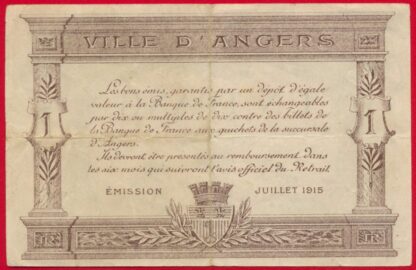 VILLE D'ANGERS
Les bons émis, garantis par un dépôt d'égale
valeur à la Banque de France, sont échangeables
par dix ou multiples de dix contre des billets de
la Banque de France aux guichets de la succursale
d'Angers.
Ils devront être présentés au remboursement dans
les six mois qui suivront l'avis officiel du Retrait
1
1
ÉMISSION JUILLET 1915